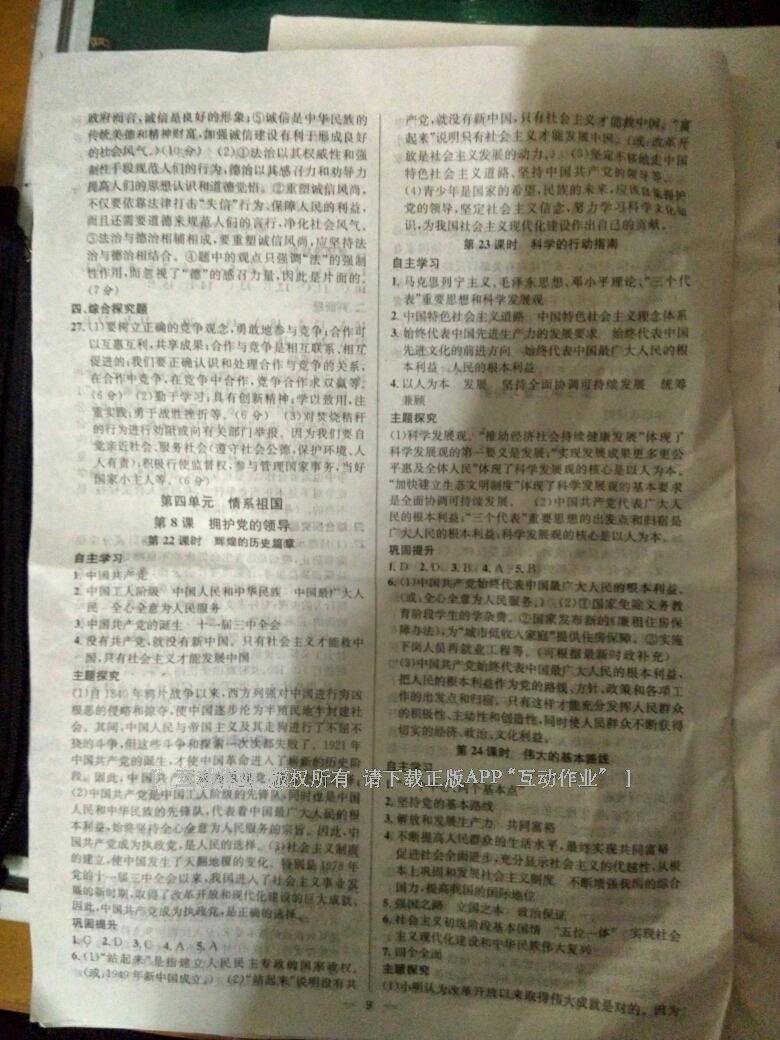 政府而言,诚信是良好的形象;⑤诚信是中华民族的
传统美德和精神财富,加强诚信建设有利于形成良好
的社会风气。)(10分) (2)①法治以其权威性和强
制性手段规范人们的行为,德治以其感召力和劝导力
提高人们的思想认识和道德觉悟。②重塑诚信风尚,
不仅要依靠法律打击“失信”行为、保障人民的利益,
而且还需要道德来规范人们的言行,净化社会风气。
③法治与德治相辅相成,要重塑诚信风尚,应坚持法
治与德治相结合。④题中的观点只强调“法”的强制
性作用,而忽视了“德”的感召力量,因此是片面的。
(7分)
四、综合探究题
27.(1)要树立正确的竞争观念,勇敢地参与竞争;合作可
以互惠互利,共享成果;合作与竞争是相互联系、相互
促进的;我们要正确认识和处理合作与竞争的关系,
在合作中竞争,在竞争中合作,竞争合作求双赢等。
(6分) (2)勤于学习;具有创新精神;学以致用,注
重实践;勇于战胜挫折等。(6分) (3)对焚烧秸秆
的行为进行劝阻或向有关部门举报。因为我们要自
觉亲近社会、服务社会(遵守社会公德,保护环境,人
人有责);积极行使监督权,参与管理国家事务,当好
国家小主人等。(6分)
第四单元 情系祖国
第8课 拥护党的领导
第22课时 辉煌的历史篇章
自主学习
1.中国共产党
2.中国工人阶级 中国人民和中华民族 中国最广大人
民 全心全意为人民服务
3.中国共产党的诞生 十一届三中全会
4.没有共产党,就没有新中国。只有社会主义才能救中
国,只有社会主义才能发展中国
主题探究
(1)自1840年鸦片战争以来,西方列强对中国进行穷凶
极恶的侵略和掠夺,使中国逐步沦为半殖民地半封建社
会。其间,中国人民与帝国主义及其走狗进行了不屈不
挠的斗争,但这些斗争和探索一次次都失败了。1921年
中国共产党的诞生,才使中国革命进入了崭新的历史阶
段。因此,中国共产
版权所有 请下载正版APP“互动作业” ]
(2)中国共产党是中国工人阶级的先锋队,同时也是中国
人民和中华民族的先锋队,代表着中国最广大人民的根
本利益,始终坚持全心全意为人民服务的宗旨。因此,中
国共产党成为执政党,是人民的选择。(3)社会主义制度
的建立,使中国发生了天翻地覆的变化。特别是1978年
党的十一届三中全会以来,我国进入了社会主义事业发
展的新时期,取得了改革开放和现代化建设的巨大成就。
因此,中国共产党成为执政党,是正确的选择。
巩固提升
1.C 2.D 3.C 4.A 5.A
6.(1)“站起来”是指建立人民民主专政的国家政权。
(或:1949年新中国成立。) (2)“站起来”说明没有共
产党,就没有新中国,只有社会主义才能救中国。“富
起来”说明只有社会主义才能发展中国。(或:改革开
放是社会主义发展的动力。) (3)坚定不移地走中国
特色社会主义道路、坚持中国共产党的领导等。
(4)青少年是国家的希望,民族的未来,应该自觉拥护
党的领导,坚定社会主义信念,努力学习科学文化知
识,为我国社会主义现代化建设作出自己的贡献。
第23课时 科学的行动指南
自主学习
1.马克思列宁主义、毛泽东思想、邓小平理论、“三个代
表”重要思想和科学发展观
2.中国特色社会主义道路 中国特色社会主义理论体系
3.始终代表中国先进生产力的发展要求 始终代表中国
先进文化的前进方向 始终代表中国最广大人民的根
本利益 人民的根本利益
4.以人为本 发展 坚持全面协调可持续发展 统筹
兼顾
主题探究
(1)科学发展观。“推动经济社会持续健康发展”体现了
科学发展观的第一要义是发展;“实现发展成果更多更公
平惠及全体人民”体现了科学发展观的核心是以人为本。
“加快建立生态文明制度”体现了科学发展观的基本要求
是全面协调可持续发展。 (2)中国共产党代表广大人
民的根本利益;“三个代表”重要思想的出发点和归宿是
广大人民的根本利益;科学发展观的核心是以人为本。
巩固提升
1.D 2.D 3.B 4.A 5.B
6.(1)中国共产党始终代表中国最广大人民的根本利益。
(或:全心全意为人民服务。) (2)①国家免除义务教
育阶段学生的学杂费。②国家发布新的《廉租住房保
障办法》,为“城市低收入家庭”提供住房保障。③实施
下岗人员再就业工程等。(可根据最新时政补充)
(3)中国共产党始终代表中国最广大人民的根本利益,
把人民的根本利益作为党的路线、方针、政策和各项工
作的出发点和归宿。只有这样才能充分发挥人民群众
的积极性、主动性和创造性,同时使人民群众不断获得
切实的经济、政治、文化利益。
第24课时 伟大的基本路线
自主学习
个基本点
2.坚持党的基本路线
3.解放和发展生产力 共同富裕
4.不断提高人民群众的生活水平,最终实现共同富裕
促进社会全面进步,充分显示社会主义的优越性,从根
本上巩固和发展社会主义制度 不断增强我国的综合
国力,提高我国的国际地位
5.强国之路 立国之本 政治保证
6.社会主义初级阶段基本国情 “五位一体” 实现社会
主义现代化建设和中华民族伟大复兴
7.四个全面
主题探究
(1)小明认为改革开放以来取得伟大成就是对的。因为
— 9 —